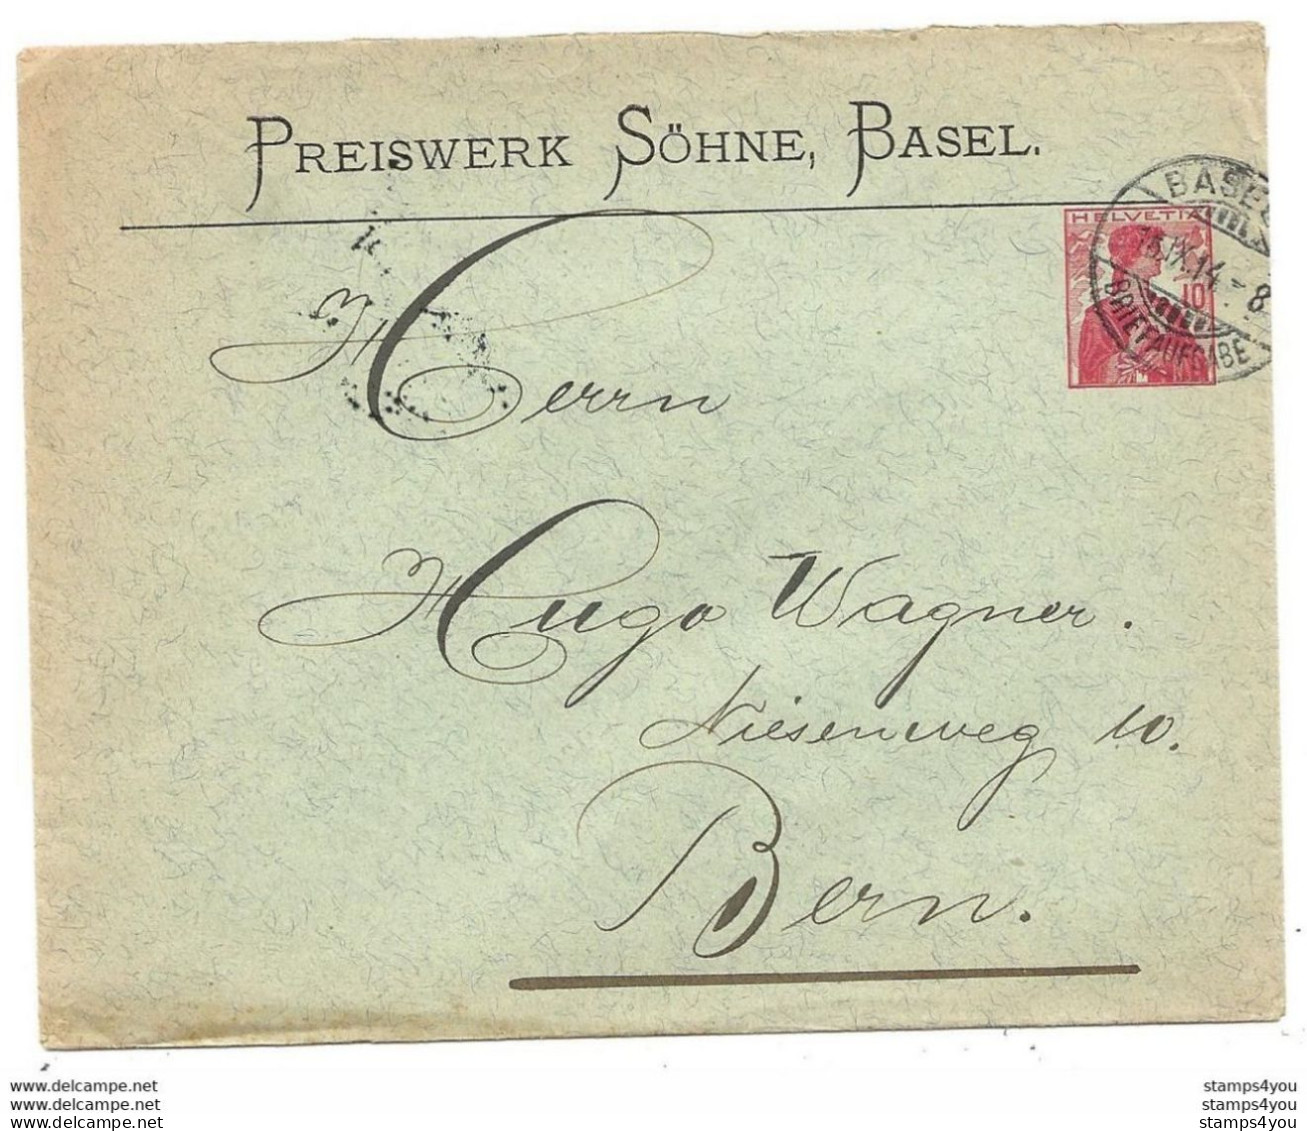 PREISWERK SÖHNE, BASEL.
BASEL
HELVETIA
15.IX.14 - 8
10
BRIEFAUFGABE
Herrn
Hugo Wagner.
Niesenweg 10.
Bern.
www.delcampe.net
www.delcampe.net
www.delcampe.net
stamps4you
stamps4you
stamps4you